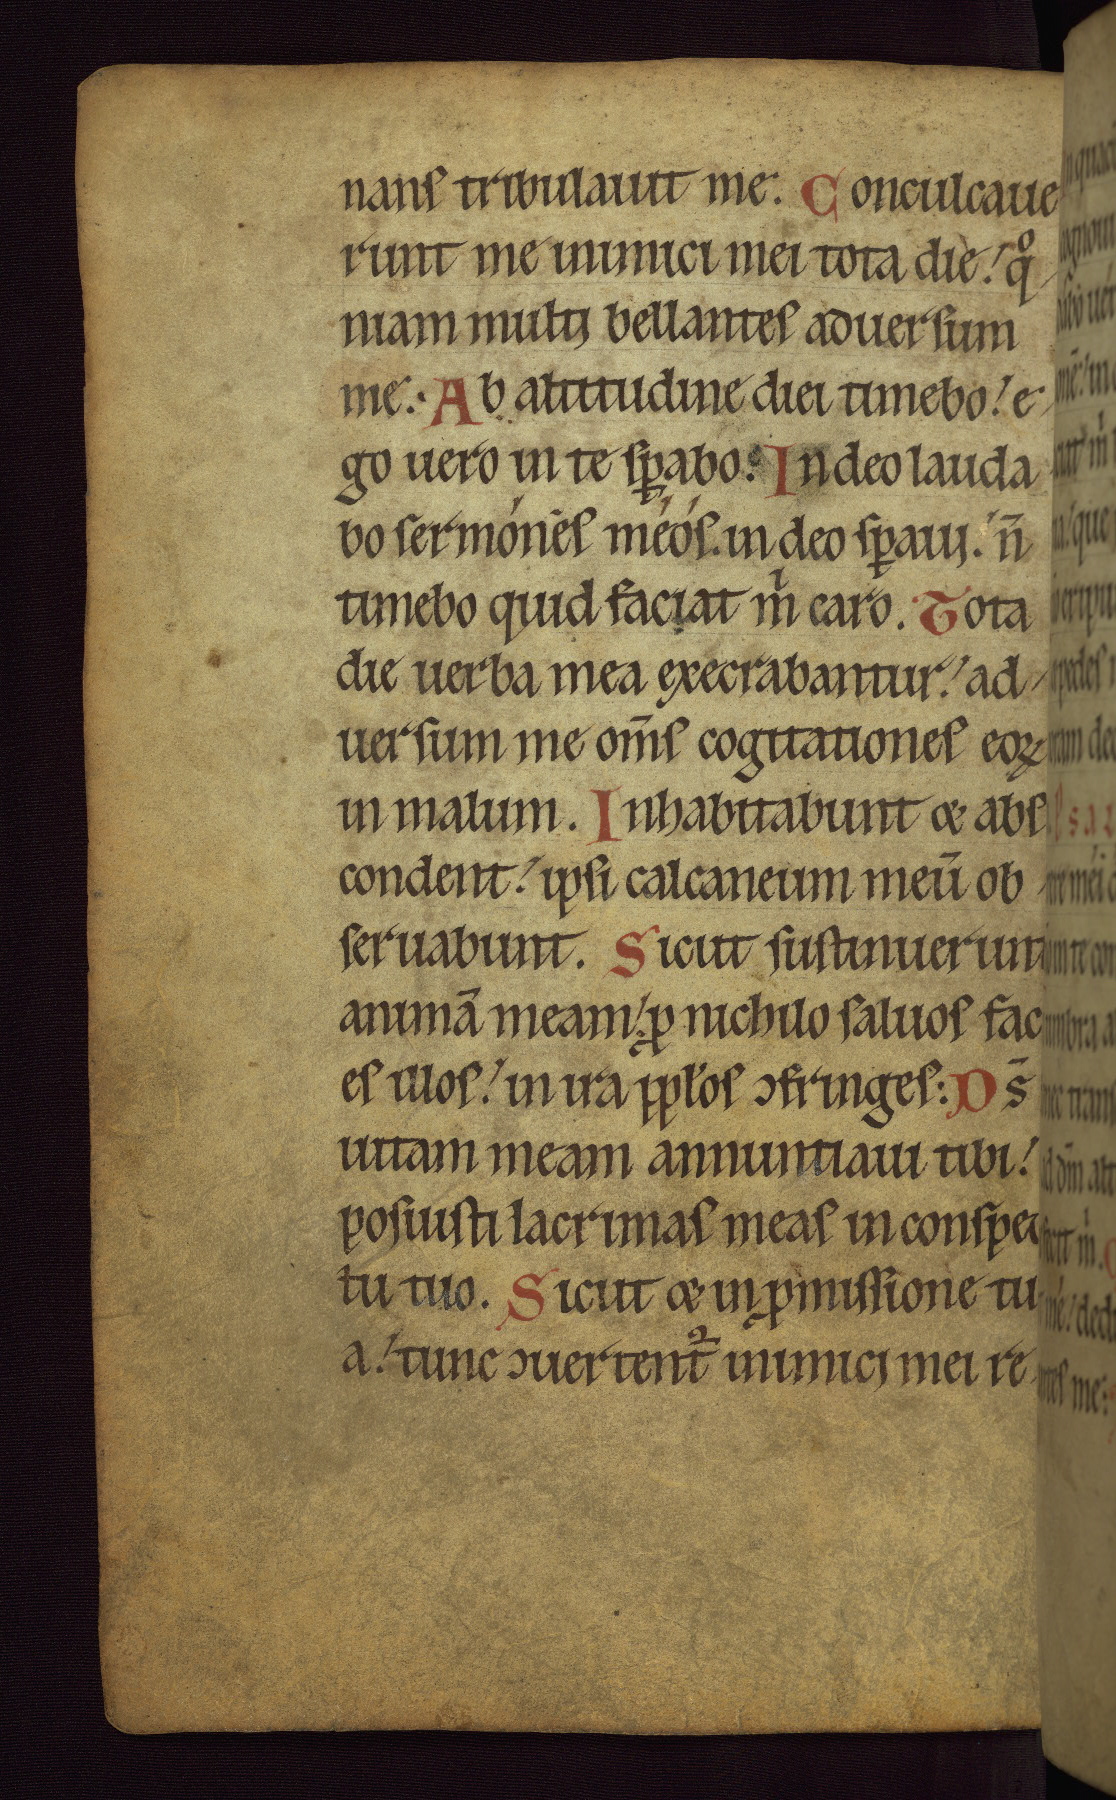 nans tribulauit me. Conculcaue
runt me inimici mei tota die: qͦ
niam multi bellantes aduersum
me. Ab altitudine diei timebo: e
go uero in te sꝑabo. In deo lauda
bo sermónes méós. in deo sꝑaui. n̄
timebo quid faciat m̍ caro. Tota
die uerba mea execrabantur: ad
uersum me om̄s cogitationes eoꝝ
in malum. Inhabitabunt & abs
condent: ipsi calcaneum meū ob
seruabunt. Sicut sustinuerunt
animā meam: ꝓ nichilo saluos fac
es illos: in ira ppłos ↄfringes: Ds̄
uitam meam annuntiaui tibi:
posuisti lacrimas meas in conspec
tu tuo. Sicut & in ꝓmissione tu
a: tunc ↄuertent᷑ inimici mei re